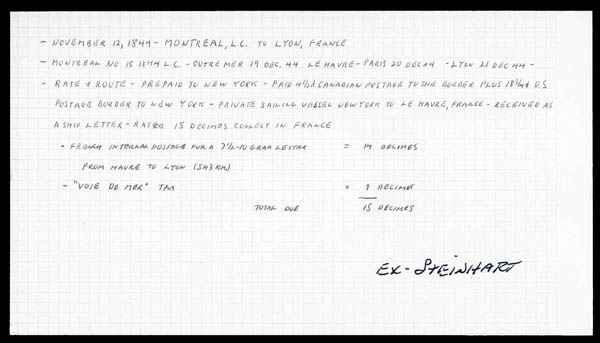 - NOVEMBER 12, 1844 - MONTREAL, L.C. TO LYON, FRANCE
- MONTREAL NO 15 1844 L.C. - OUTRE MER 19 DEC. 44 LE HAVRE - PARIS 20 DEC 44 - LYON 21 DEC 44 -
- RATE & ROUTE - PREPAID TO NEW YORK - PAID 4½d CANADIAN POSTAGE TO THE BORDER PLUS 18¾¢ U.S.
POSTAGE BORDER TO NEW YORK - PRIVATE SAILING VESSEL NEW YORK TO LE HAVRE, FRANCE - RECEIVED AS
A SHIP LETTER - RATED 15 DECIMES COLLECT IN FRANCE
- FRENCH INTERNAL POSTAGE FOR A 7½-10 GRAM LETTER = 14 DECIMES
FROM HAVRE TO LYON (543 KM)
- "VOIE DE MER" TAX = 1 DECIME
TOTAL DUE 15 DECIMES
EX- STEINHART